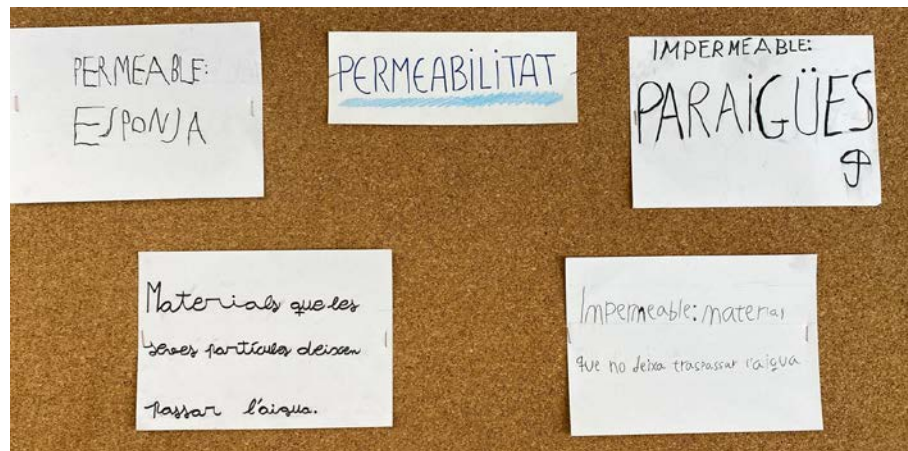 PERMEABLE:
ESPONJA
PERMEABILITAT
IMPERMEABLE:
PARAIGÜES
Materials que les
seves partícules deixen
passar l'aigua.
Impermeable: material
que no deixa traspassar l'aigua